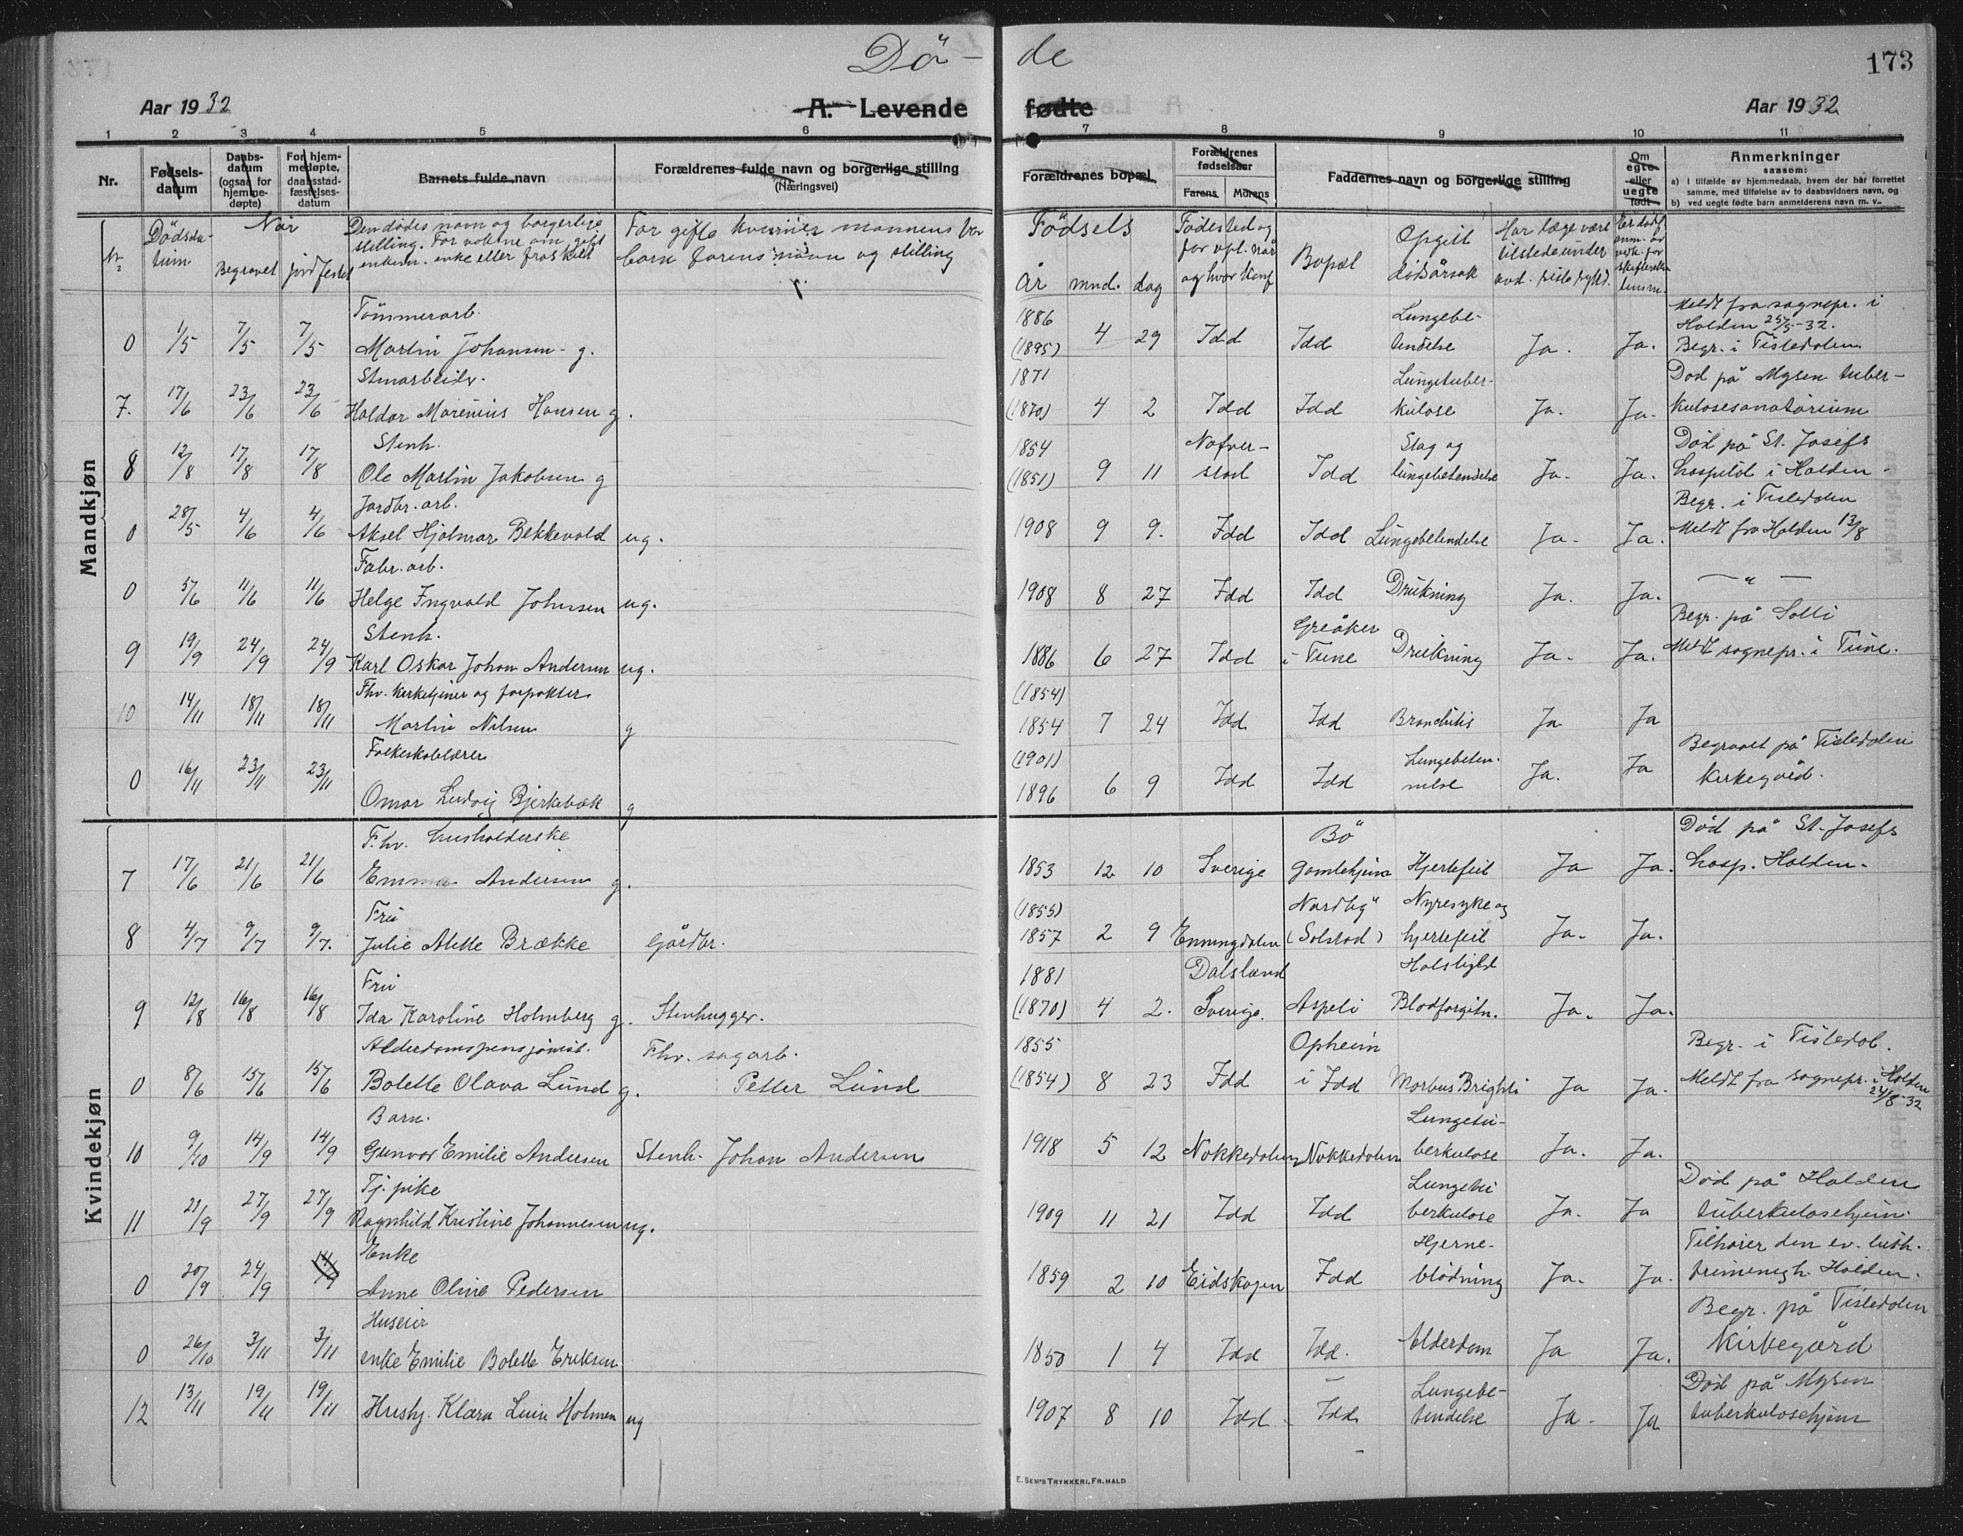 Dö - de
173
Aar 1932
A. Levende fødte
Aar 1932
1 2 3 4 5 6 7 8 9 10 11
Nr.
Fødselsdatum
Daabsdatum (ogsaa for hjemmedøpte)
For hjemmedøpte, daabsstadfæstelsesdatum
Barnets fulde navn
Forældrenes fulde navn og borgerlige stilling
(Næringsvei)
Forældrenes bopæl
Forældrenes fødselsaar
Farens Morens
Faddernes navn og borgerlige stilling
Om egte eller uegte født
Anmerkninger
saasom:
a) i tilfælde av hjemmedaab, hvem der har forrettet
samme, med tilføielse av to daabsvidners navn, og
b) ved uegte fødte barn anmelderens navn m. v.
Nr. Dödsdatum
Når
Begravet jordfestet
Den dödes navn og borgerlige
stilling. For voksne om gift
enkem. enke eller fraskilt
For gifte kvinner mannens for
barn farens navn og stilling
Födsels
år mnd. dag
Födested og
for opl. når
og hvor konf
Bopæl
Opgitt
dödsårsak
Har læge vært
tilstede under
avd. siste sykd.
Er dödsf.
anm.
Mandkjøn
Tömmerarb.
0 1/5 7/5 7/5 Martin Johansen - g. 1886 (1895) 4 29 Idd Idd Lungebetendelse Ja. Ja. Meldt fra sognepr. i Halden 25/5-32. Begr. i Tistedalen
Stenarbeider.
7. 17/6 23/6 23/6 Haldor Marenius Hansen g. 1871 (1870) 4 2 Idd Idd Lungetuberkulose Ja. Ja. Död på Mysen tuberkulosesanatorium
Stenh.
8 12/8 17/8 17/8 Ole Martin Jakobsen g 1854 (1851) 9 11 Nafverstad Idd Slag og lungebetendelse Ja. Ja. Död på St. Josefs hospital i Halden.
Jordbr. arb.
0 28/5 4/6 4/6 Aksel Hjalmar Bekkevold ug. 1908 9 9. Idd Idd Lungebetendelse Ja. Ja. Begr. i Tistedalen Meldt fra Halden 13/8
Fabr. arb.
0 5/6 11/6 11/6 Helge Ingvald Johnsen ug. 1908 8 27 Idd Idd Drukning Ja. Ja. — " —
Stenh.
9 19/9 24/9 24/9 Karl Oskar Johan Andersen ug. 1886 6 27 Idd Greåker i Tune Drukning Ja. Ja. Begr. på Solli Meldt sognepr. i Tune.
Fhv. kirketjener og forpakter
10 14/11 18/11 18/11 Martin Nilsen g (1854) 1854 7 24 Idd Idd Bronchitis Ja Ja
Folkeskolelærer
0 16/11 23/11 23/11 Omar Ludvig Bjerkebæk g (1901) 1896 6 9 Idd Idd Lungebetennelse Ja. Ja Begravet på Tistedalen kirkegård.
Kvindekjøn
F.hv. husholderske
7 17/6 21/6 21/6 Emma Andersen g. 1853 12 10 Sverige Bö gamlehjem Hjertefeil Ja Ja. Död på St. Josefs hosp. Halden.
Fru
8 4/7 9/7 9/7. Julie Alette Brække Gårdbr. (1855) 1857 2 9 Enningdalen Nordby (Solstad) Nyresyke og hjertefeil Ja. Ja.
Fru
9 12/8 16/8 16/8 Ida Karoline Holmberg g. Stenhugger. 1881 (1870) 4 2. Dalsland Sverige. Aspeli Halsbyld Blodforgiftn. Ja. Ja.
Alderdomspensjonist.
0 8/6 15/6 15/6 Bolette Olava Lund g. Fhv. sagarb. Petter Lund 1855 (1854) 8 23 Idd Opheim i Idd Morbus Brighti Ja Ja. Begr. i Tistedal. Meldt fra sognepr. i Halden 24/8-32
Barn.
10 9/10 14/9 14/9 Gunvor Emilie Andersen Stenh. Johan Andersen 1918 5 12 Nokkedalen Nokkedalen Lungetuberkulose Ja. Ja.
Tj. pike
11 21/9 27/9 27/9 Ragnhild Kristine Johannesen ug. 1909 11 21 Idd Idd Lungetuberkulose Ja. Ja Död på Halden tuberkulosehjem.
Enke
0 20/9 24/9 Anne Oline Pedersen 1859 2 10 Eidskogen Idd Hjerneblödning Ja. Ja. Tilhører den ev. luth. frimenigh. Halden.
Huseier
0 26/10 3/11 3/11 enke Emilie Bolette Eriksen 1850 1 4 Idd Idd. Alderdom Ja Ja. Begr. på Tistedalen Kirkegård
12 13/11 19/11 19/11 Husbj. Klara Holmen ug 1907 8 10 Idd Idd Lungebetendelse Ja. Ja Död på Mysen tuberkulosehjem
E. Sem's Trykkeri, Fr.hald